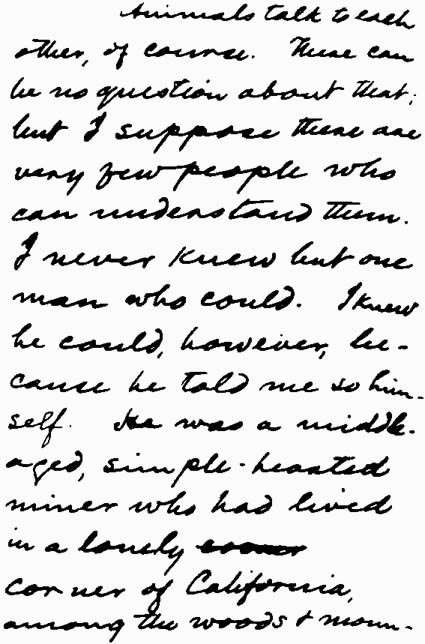 Animals talk to each
other, of course. There can
be no question about that;
but I suppose there are
very few people who
can understand them.
I never knew but one
man who could. I knew
he could, however, be-
cause he told me so him-
self. He was a middle-
aged, simple-hearted
miner who had lived
in a lonely corner
corner of California,
among the woods & moun-